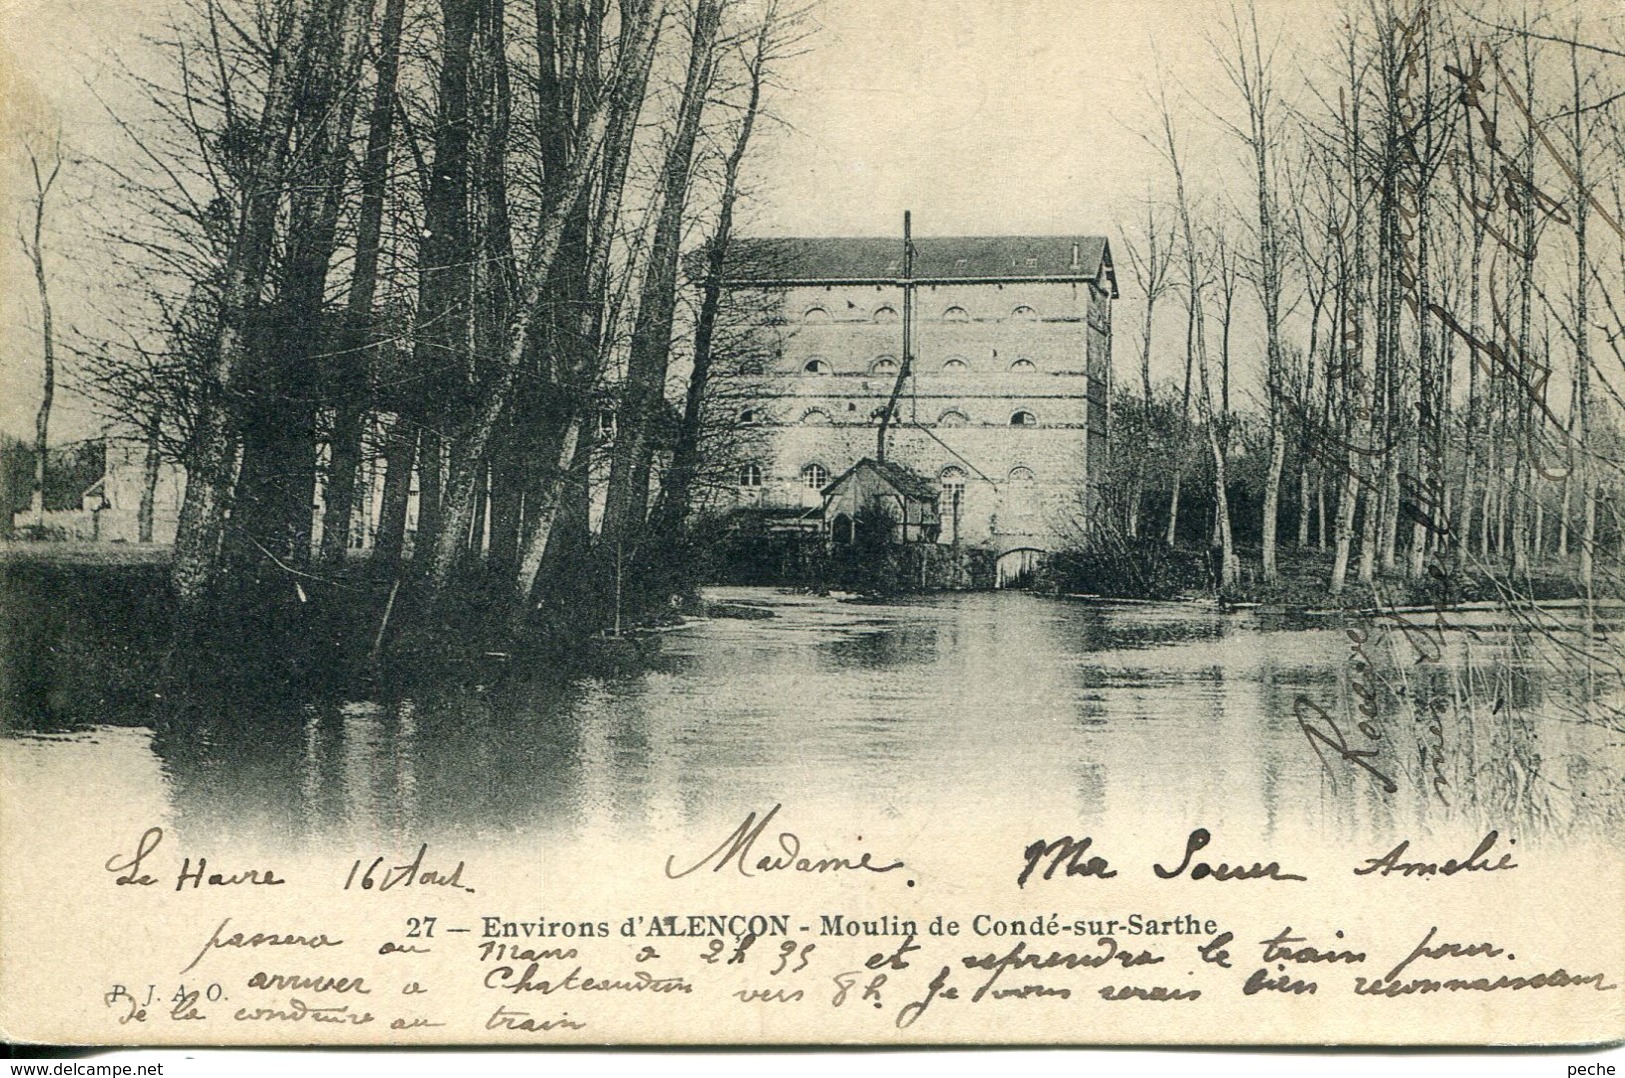 Le Havre 16 Aout. Madame. Ma Soeur Amelie
27 — Environs d'ALENÇON - Moulin de Condé-sur-Sarthe
passera au Mans a 2h 35 et reprendra le train pour.
arriver a Chateaudun vers 8h. Je vous serais bien reconnaissant
de la conduire au train
P. J. A. O.
Recevez Madame
mes
www.delcampe.net
peche